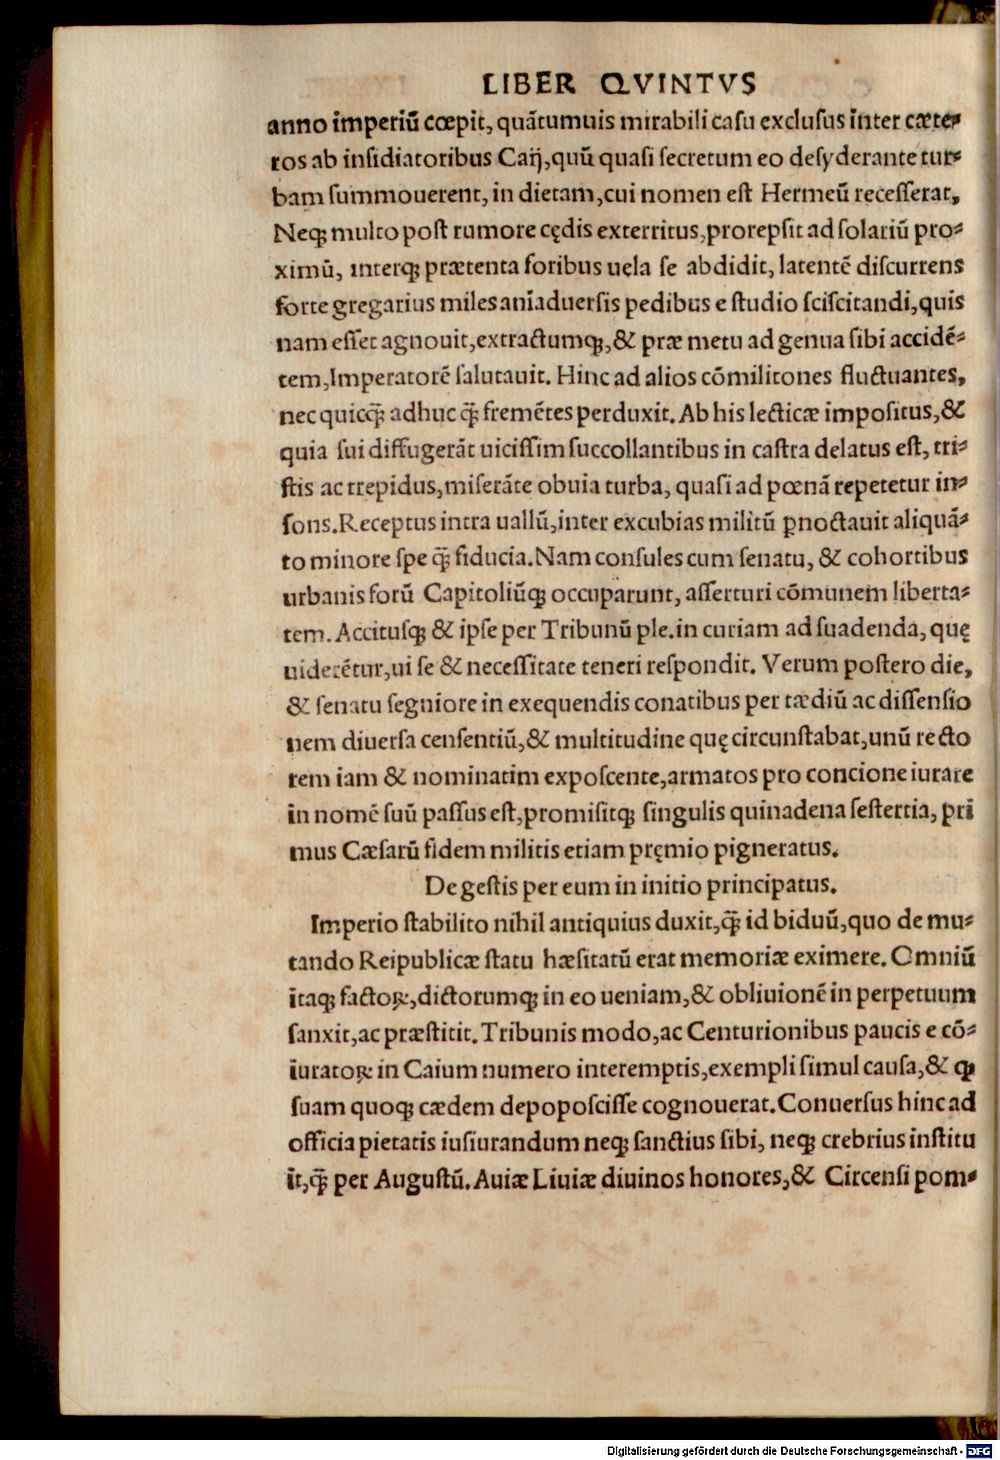 LIBER QVINTVS
anno imperiū cœpit, quātumuis mirabili caſu excluſus inter cæte-
ros ab inſidiatoribus Caij, quū quaſi ſecretum eo deſyderante tur-
bam ſummouerent, in dietam, cui nomen eſt Hermeū receſſerat,
Neqꝫ multo poſt rumore cędis exterritus, prorepſit ad ſolariū pro-
ximū, interqꝫ prætenta foribus uela ſe abdidit, latentē diſcurrens
forte gregarius miles aniaduerſis pedibus e ſtudio ſciſcitandi, quis
nam eſſet agnouit, extractumqꝫ, & præ metu ad genua ſibi accidē-
tem, Imperatorē ſalutauit. Hinc ad alios cōmilitones fluctuantes,
nec quicq̄ꝫ adhuc q̄ꝫ fremētes perduxit. Ab his lecticæ impoſitus, &
quia ſui diffugerāt uiciſſim ſuccollantibus in caſtra delatus eſt, tri-
ſtis ac trepidus, miſerāte obuia turba, quaſi ad pœnā repetetur in-
ſons. Receptus intra uallū, inter excubias militū ꝑnoctauit aliquā-
to minore ſpe q̄ꝫ fiducia. Nam conſules cum ſenatu, & cohortibus
urbanis forū Capitoliūqꝫ occuparunt, aſſerturi cōmunem liberta-
tem. Accituſqꝫ & ipſe per Tribunū ple. in curiam ad ſuadenda, quę
uiderētur, ui ſe & neceſſitate teneri reſpondit. Verum poſtero die,
& ſenatu ſegniore in exequendis conatibus per tædiū ac diſſenſio
nem diuerſa cenſentiū, & multitudine quę circunſtabat, unū recto
rem iam & nominatim expoſcente, armatos pro concione iurare
in nomē ſuū paſſus eſt, promiſitqꝫ ſingulis quinadena ſeſtertia, pri
mus Cæſarū fidem militis etiam pręmio pigneratus.
De geſtis per eum in initio principatus.
Imperio ſtabilito nihil antiquius duxit, q̄ꝫ id biduū, quo de mu-
tando Reipublicæ ſtatu hæſitatū erat memoriæ eximere. Omniū
itaqꝫ factoꝝ, dictorumqꝫ in eo ueniam, & obliuionē in perpetuum
ſanxit, ac præſtitit. Tribunis modo, ac Centurionibus paucis e cō-
iuratoꝝ in Caium numero interemptis, exempli ſimul cauſa, & ꝙ
ſuam quoqꝫ cædem depopoſciſſe cognouerat. Conuerſus hinc ad
officia pietatis iuſiurandum neqꝫ ſanctius ſibi, neqꝫ crebrius inſtitu
it, q̄ꝫ per Auguſtū. Auiæ Liuiæ diuinos honores, & Circenſi pom-
Digitalisierung gefördert durch die Deutsche Forschungsgemeinschaft - DFG